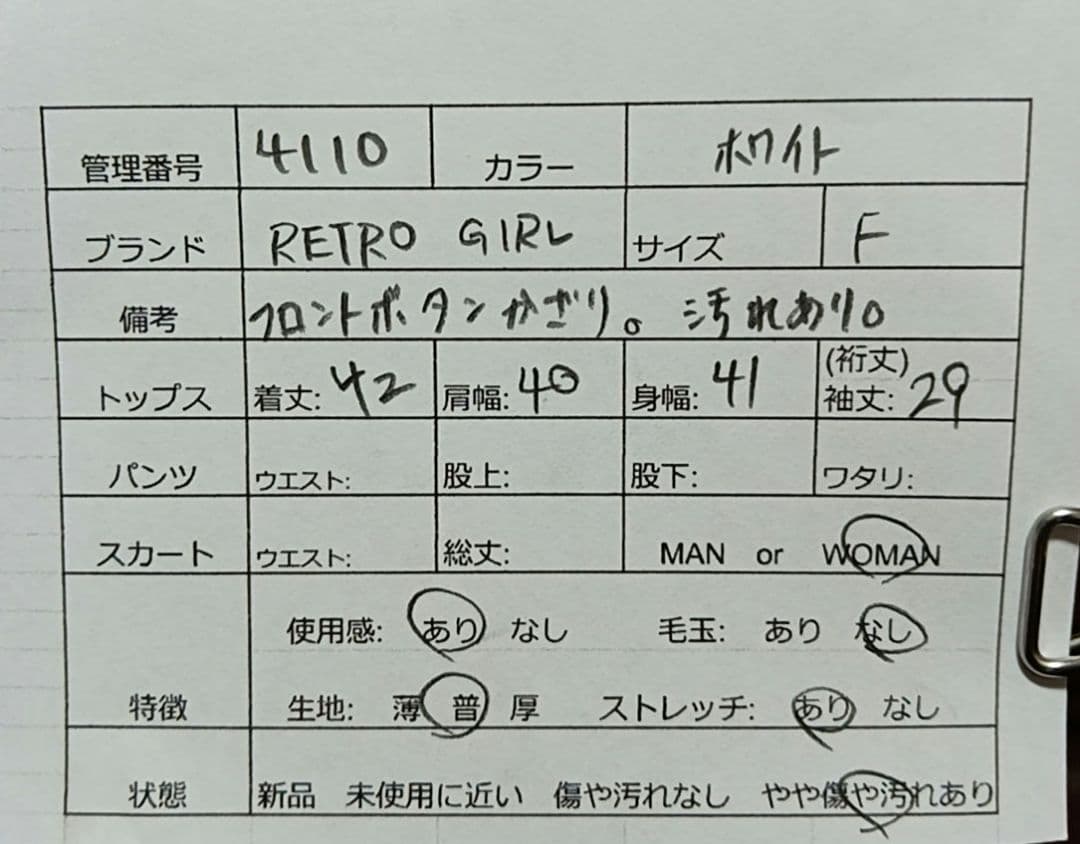 管理番号 4110 カラー ホワイト
ブランド RETRO GIRL サイズ F
備考 フロントボタンかざり。汚れあり。
トップス 着丈: 42 肩幅: 40 身幅: 41 (裄丈) 袖丈: 29
パンツ ウエスト: 股上: 股下: ワタリ:
スカート ウエスト: 総丈: MAN or WOMAN
使用感: あり なし 毛玉: あり なし
特徴 生地: 薄 普 厚 ストレッチ: あり なし
状態 新品 未使用に近い 傷や汚れなし やや傷や汚れあり